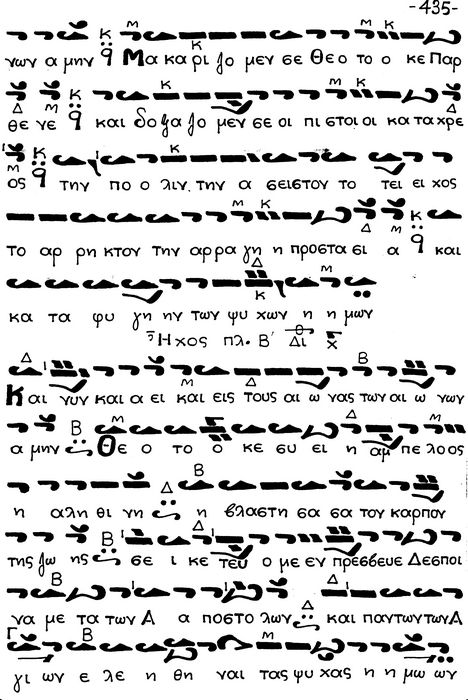 -435-
νων α μην Μα κα ρι ζο μεν σε Θεο το ο κε Παρ
θε νε και δο ξα ζο μεν σε οι πι στοι οι κα τα χρε
ος την πο ο λιν την α σειστον το τει ει χος
το αρ ρη κτον την αρρα γη η προστα σι α και
κα τα φυ γη ην των ψυ χων η η μων
Ηχος πλ. Β΄ Δι χ
Και νυν και α ει και εις τους αι ω νας των αι ω νων
α μην Θε ο το ο κε συ ει η αμ πε λοος
η αλη θι νη η βλαστη σα σα τον καρπον
της ζω ης σε ι κε τευ ο με εν πρεσβευε Δεσποι
να με τα των Α α ποστο λων και παντων των Α
γι ων ε λε η θη ναι τας ψυ χας η η μω ων